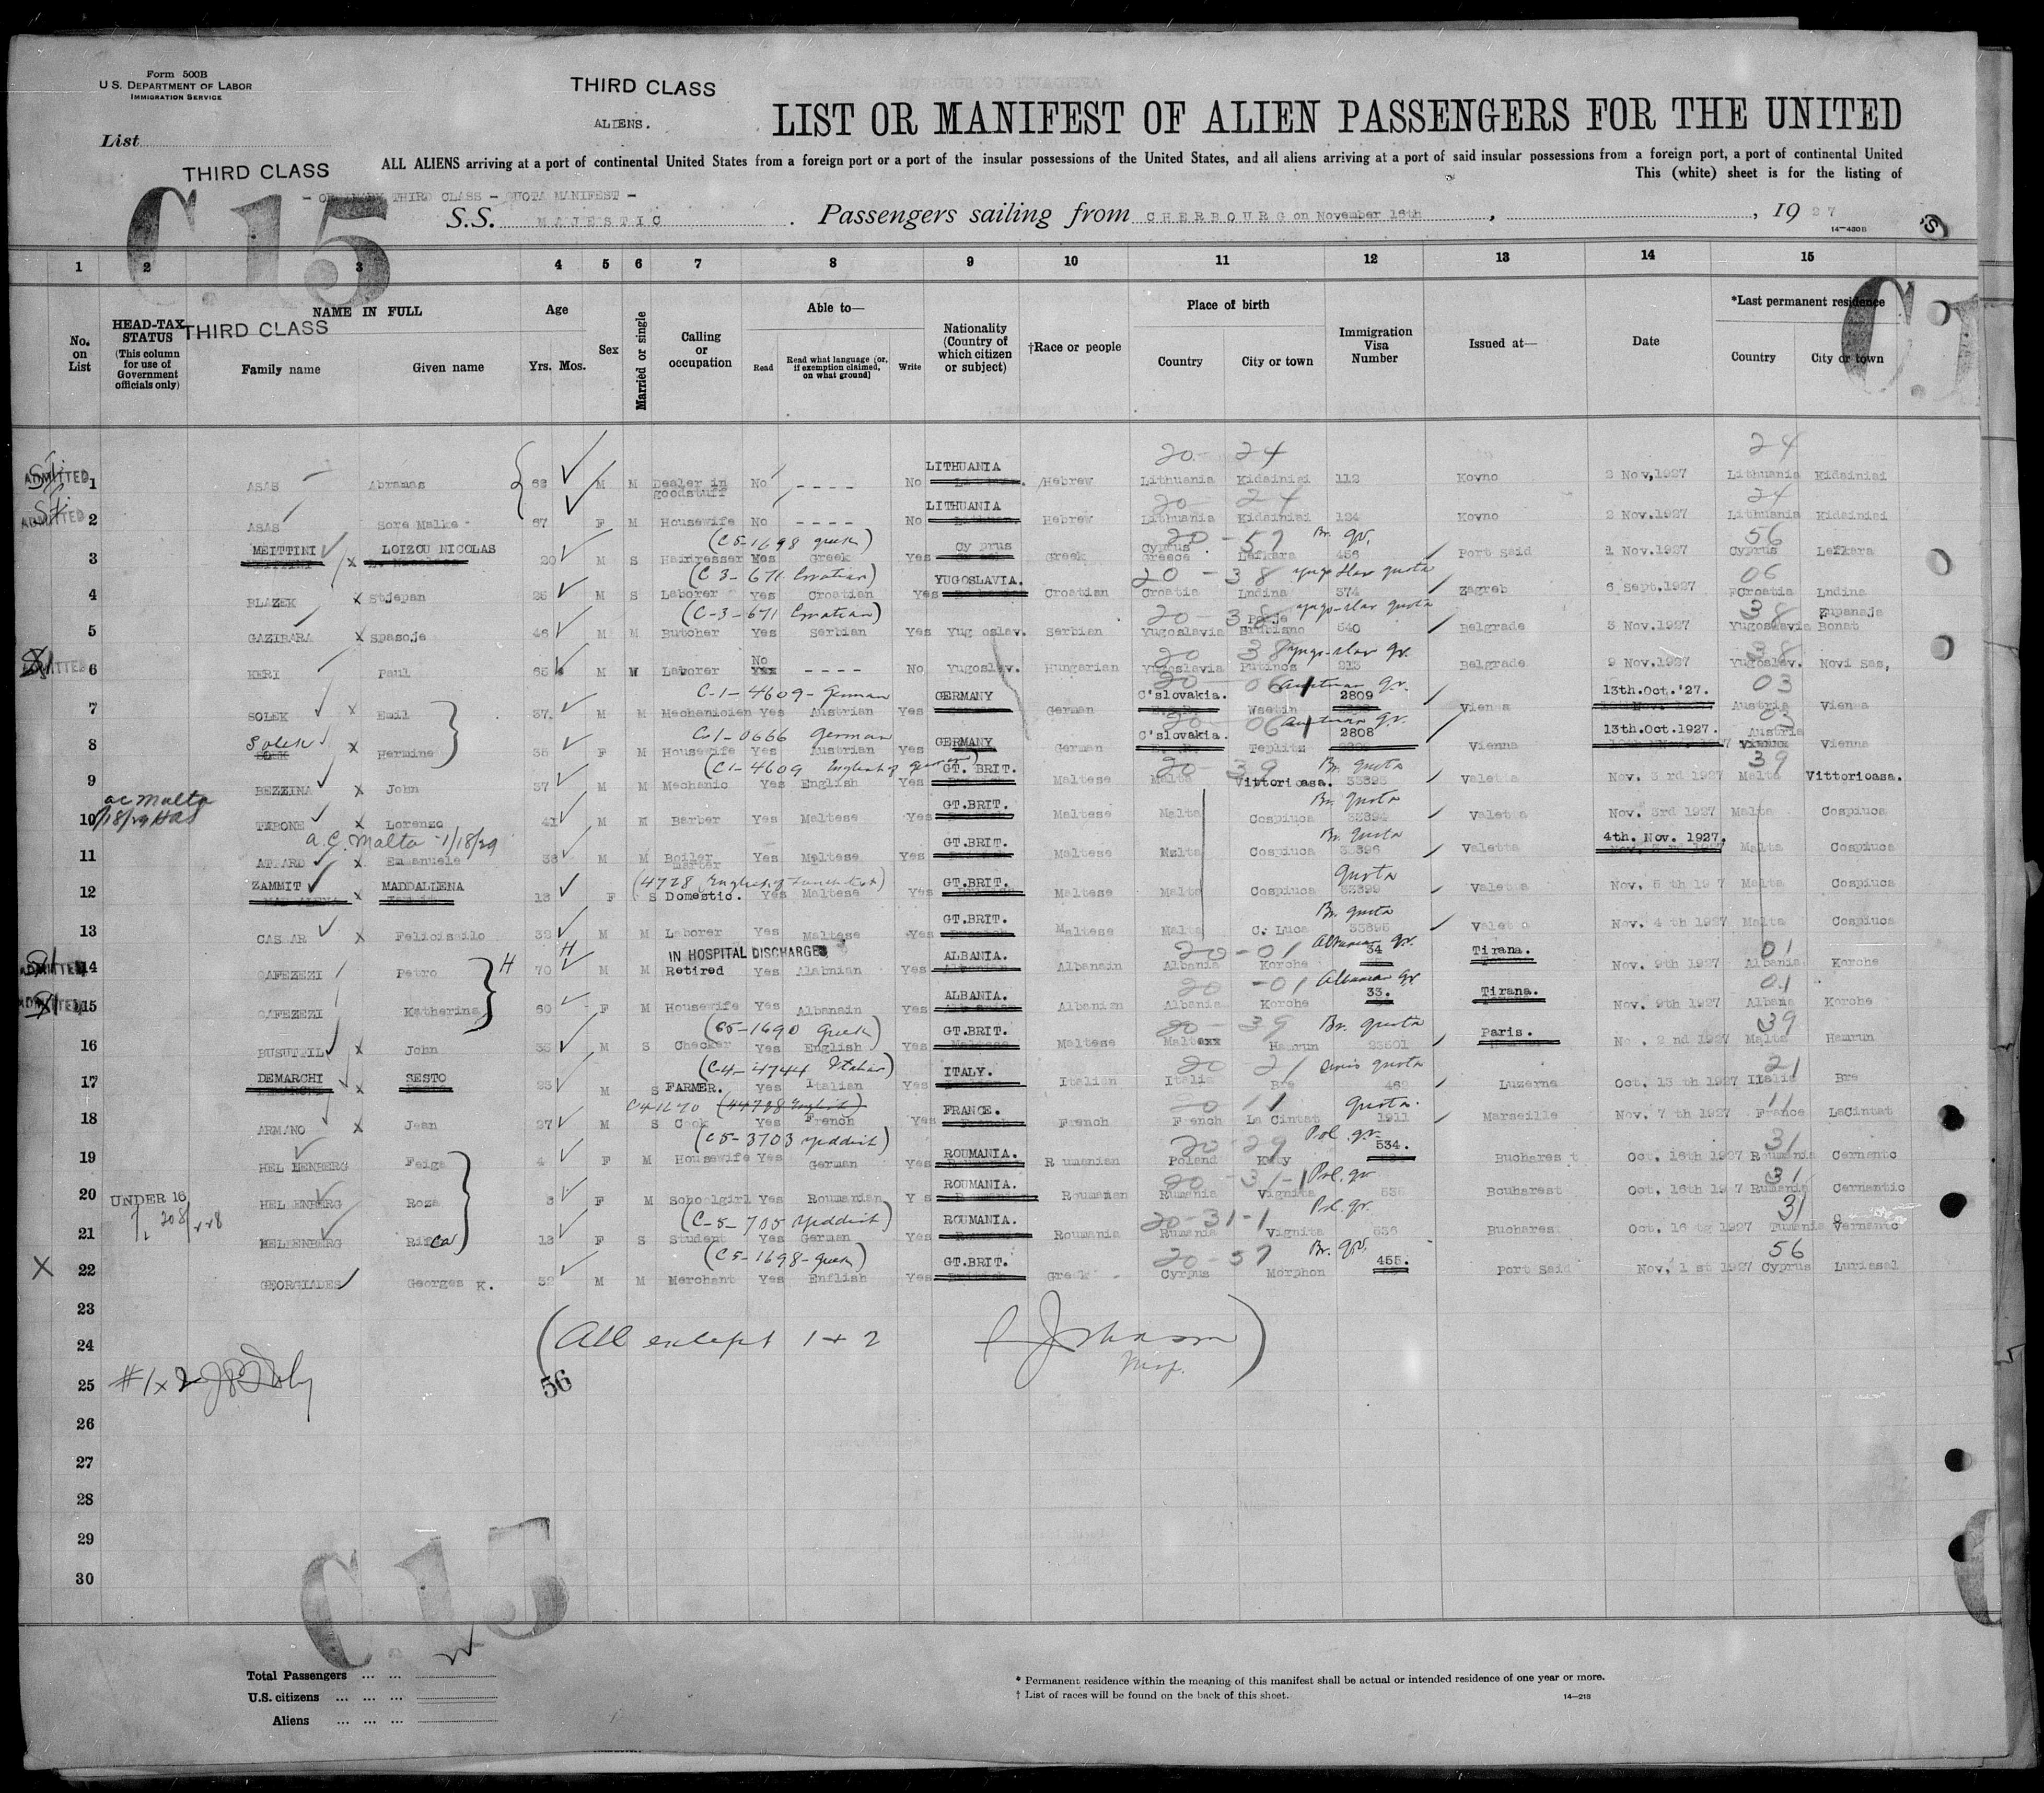 Form 500B
U.S. DEPARTMENT OF LABOR
IMMIGRATION SERVICE
THIRD CLASS
ALIENS.
LIST OR MANIFEST OF ALIEN PASSENGERS FOR THE UNITED
List
ALL ALIENS arriving at a port of continental United States from a foreign port or a port of the insular possessions of the United States, and all aliens arriving at a port of said insular possessions from a foreign port, a port of continental United
THIRD CLASS
This (white) sheet is for the listing of
- ORDINARY THIRD CLASS - QUOTA MANIFEST -
C.15
S.S. MAJESTIC. Passengers sailing from CHERBOURG on November 16th, 1927
14-430B
1 2 3 4 5 6 7 8 9 10 11 12 13 14 15
No. on List
HEAD-TAX STATUS (This column for use of Government officials only)
THIRD CLASS
NAME IN FULL
Family name Given name
Age
Yrs. Mos.
Sex
Married or single
Calling or occupation
Able to—
Read
Read what language (or, if exemption claimed, on what ground)
Write
Nationality (Country of which citizen or subject)
†Race or people
Place of birth
Country City or town
Immigration Visa Number
Issued at—
Date
*Last permanent residence
Country City or town
20 24 24
ADMITTED 1 ASAS Abramas M M Dealer in goodstuff No - - - - No LITHUANIA Hebrew Lithuania Kidainiai 112 Kovno 2 Nov,1927 Lithuania Kidainiai
20 24 24
ADMITTED 2 ASAS Sore Malke 67 F M Housewife No - - - - No LITHUANIA Hebrew Lithuania Kidainiai 124 Kovno 2 Nov.1927 Lithuania Kidainiai
(C5-1698 Greek) 20-57 Br. qr. 56
3 MEITTINI x LOIZOU NICOLAS 20 M S Hairdresser Yes Greek Yes Cyprus Greek Cyprus Greece Lefkara 456 Port Said 1 Nov.1927 Cyprus Lefkara
(C3-671 Croatian) 20-38 yugo slav quota 06
4 BLAZEK x Stjepan M S Laborer Yes Croatian Yes YUGOSLAVIA. Croatian Croatia Lndina 374 Zagreb 6 Sept.1927 Croatia Lndina
(C-3-671 Croatian) 20-38 yugo-slav quota 38 Zupanaja
5 GAZIBARA x Spasoje 46 M M Butcher Yes Serbian Yes Yugoslav. Serbian Yugoslavia 540 Belgrade 3 Nov.1927 Yugoslavia Bonat
20 38 yugo-slav qr. 38
ADMITTED 6 KERI Paul 65 M W Laborer No - - - - No Yugoslav. Hungarian Yugoslavia Putinos 213 Belgrade 9 Nov.1927 Yugoslav. Novi Sas,
C-1-4609-German 20 06 Austrian qr. 03
7 SOLEK x Emil 37. M M Mechanicien Yes Austrian Yes GERMANY German C'slovakia. Wsetin 2809 Vienna 13th.Oct.'27. Austria Vienna
C-1-0666 German 20 06 Austrian qr. 03
8 Solek x Hermine F M Housewife Yes Austrian Yes GERMANY German C'slovakia. Teplitz 2808 Vienna 13th.Oct.1927. Austria Vienna
(C1-4609 English & German) 20-39 Br. quota 39
9 BEZZINA x John 37 M M Mechanic Yes English Yes GT. BRIT. Maltese Malta Vittorioasa. 33393 Valetta Nov. 3rd 1927 Malta Vittorioasa.
ac Malta 1/18/29 Br. quota
10 TABONE x Lorenzo 41 M M Barber Yes Maltese Yes GT.BRIT. Maltese Malta Cospiuca 33394 Valetta Nov. 3rd 1927 Malta Cospiuca
a.C. Malta-1/18/29 Br. quota
11 ATTARD x Emmanuele 38 M M Boiler Yes Maltese Yes GT.BRIT. Maltese Malta Cospiuca 33396 Valetta 4th. Nov. 1927. Malta Cospiuca
Quota
12 ZAMMIT x MADDALLENA F S Domestic. Yes Maltese Yes GT.BRIT. Maltese Malta Cospiuca 33399 Valetta Nov. 8 th 1927 Malta Cospiuca
Br. quota
13 CASSAR x Felicissilo 32 M M Laborer Yes Maltese Yes GT.BRIT. Maltese Malta C. Luca 33395 Valetta Nov. 4 th 1927 Malta Cospiuca
H IN HOSPITAL DISCHARGED 20-01 Albanian qr. 01
ADMITTED 14 CAFEZEZI Petro H 70 M M Retired Yes Alabnian Yes ALBANIA. Albanain Albania Korche 34 Tirana. Nov. 9th 1927 Albania Korche
20 -01 Albanian qr 01
ADMITTED 15 CAFEZEZI Katherina 60 F M Housewife Yes Albanain Yes ALBANIA. Albanian Albania Korche 33. Tirana. Nov. 9th 1927 Albana Korche
(C5-1690 Greek) 20-39 Br. quota 39
16 BUSUTTIL x John 35 M S Checker Yes English Yes GT.BRIT. Maltese Malta Hamrun 23501 Paris. No. 2 nd 1927 Malta Hamrun
(C-4-4744 Italian) 20 21 quota 21
17 DEMARCHI x SESTO 25 M S FARMER. Yes Italian Yes ITALY. Italian Italia Bre 462 Luzerne Oct. 13 th 1927 Italia Bre
20 11 quota 11
18 ARMANO x Jean 27 M S Cook Yes French Yes FRANCE. French French La Cintat 1911 Marseille Nov. 7 th 1927 France LaCintat
(C5-3703 Yiddish) 20 29 Pol. qr. 31
19 HELLENBERG Feiga 4 F M Housewife Yes German Yes ROUMANIA. Rumanian Poland Kuty 534. Bucharest Oct. 16th 1927 Roumania Cernantc
20-31-1 Pol. qr. 31
20 UNDER 16 HELLENBERG Roza F M Schoolgirl Yes Roumanian Yes ROUMANIA. Roumanian Rumania Vignita 535 Bouharest Oct. 16th 1927 Rumania Cernantic
(C-5-705 Yiddish) 20-31-1 Pol. qr. 31
21 HELLENBERG Rifca 13 F S Student Yes German Yes ROUMANIA. Roumania Rumania Vignita 536 Bucharest Oct. 16 1927 Rumania
(C5-1698-Greek) 20-57 Br. qr. 56
X 22 GEORGIADES Georges K. 32 M M Merchant Yes Enflish Yes GT.BRIT. Greek Cyrpus Morphon 455. Port Said Nov. 1 st 1927 Cyprus
23
(All except 1 + 2 Johnson Insp.)
24
#1x2
25 56
26
27
28
29
30
C.15
Total Passengers ... ...
U.S. citizens ... ... ...
Aliens ... ... ...
* Permanent residence within the meaning of this manifest shall be actual or intended residence of one year or more.
† List of races will be found on the back of this sheet.
14-213